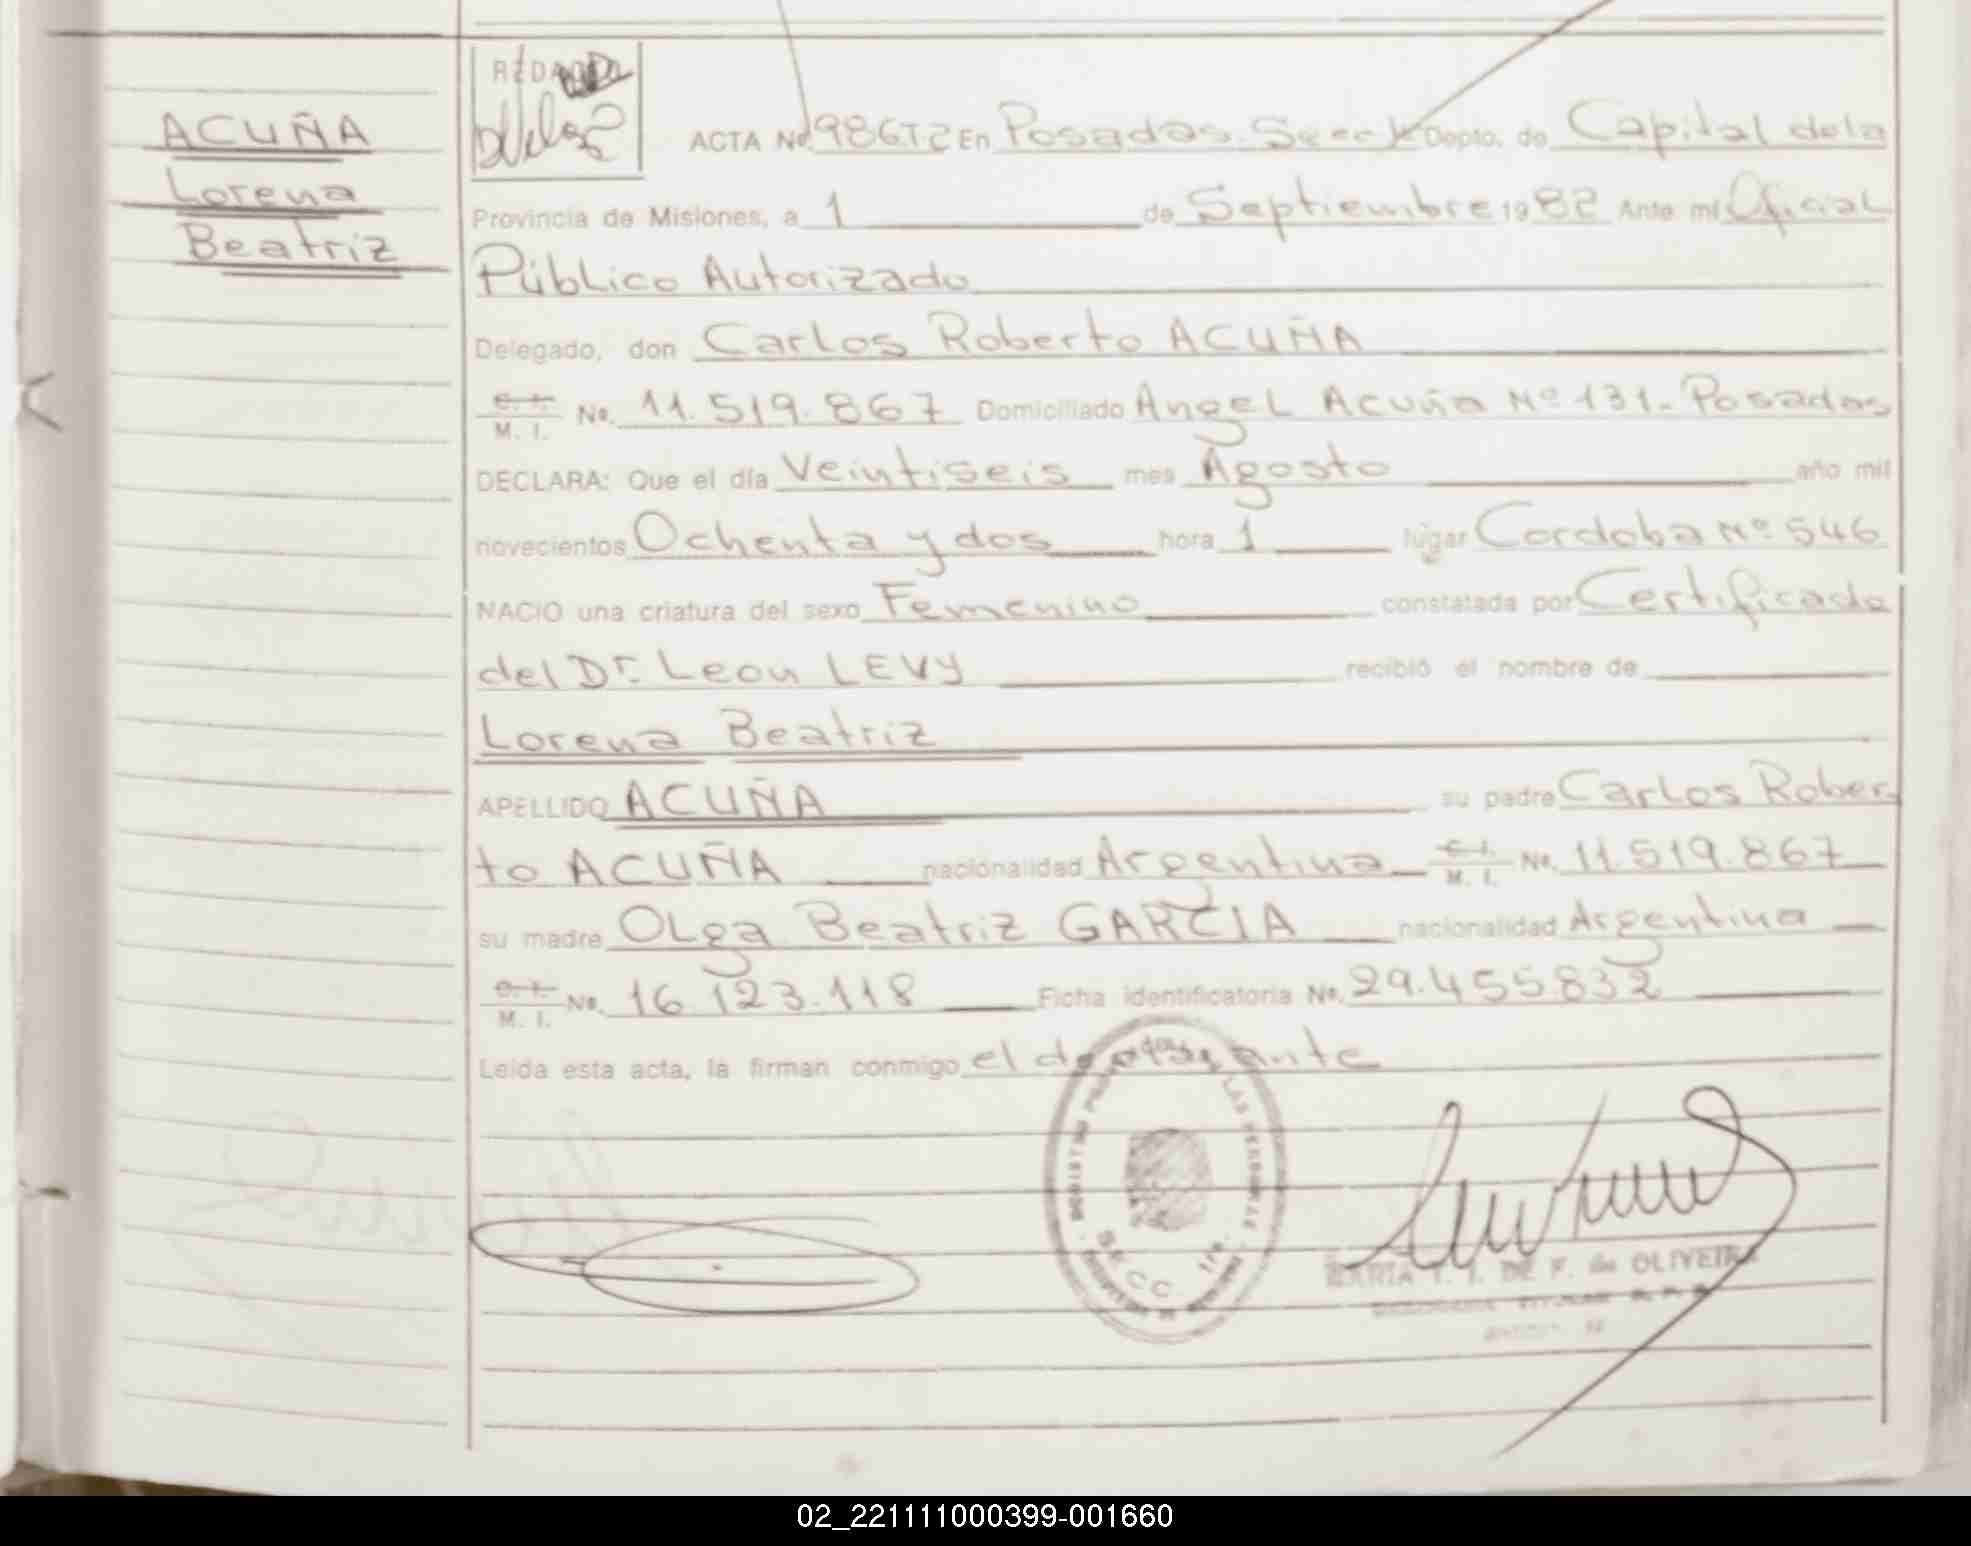 ACUÑA
Lorena
Beatriz
ACTA No 986T2 En Posadas. Secc 1ª Depto. de Capital de la
Provincia de Misiones, a 1 de Septiembre 1982 Ante mi Oficial
Público Autorizado
Delegado, don Carlos Roberto ACUÑA
C. I. M. I. No. 11.519.867 Domiciliado Angel Acuña Nº 131.- Posadas
DECLARA: Que el día Veintiseis mes Agosto año mil
novecientos Ochenta y dos hora 1 lugar Cordoba Nº 546
NACIO una criatura del sexo Femenino constatada por Certificado
del Dr. Leon LEVY recibió el nombre de
Lorena Beatriz
APELLIDO ACUÑA su padre Carlos Rober
to ACUÑA nacionalidad Argentina C. I. M. I. No. 11.519.867
su madre OLga Beatriz GARCIA nacionalidad Argentina
C. I. M. I. No. 16.123.118 Ficha identificatoria No. 29.455832
Leida esta acta, la firman conmigo el declarante
REGISTRO LAS PERSONAS
SECC 1ra.
MARIA T. I. DE F. de OLIVEIRA
02_221111000399-001660